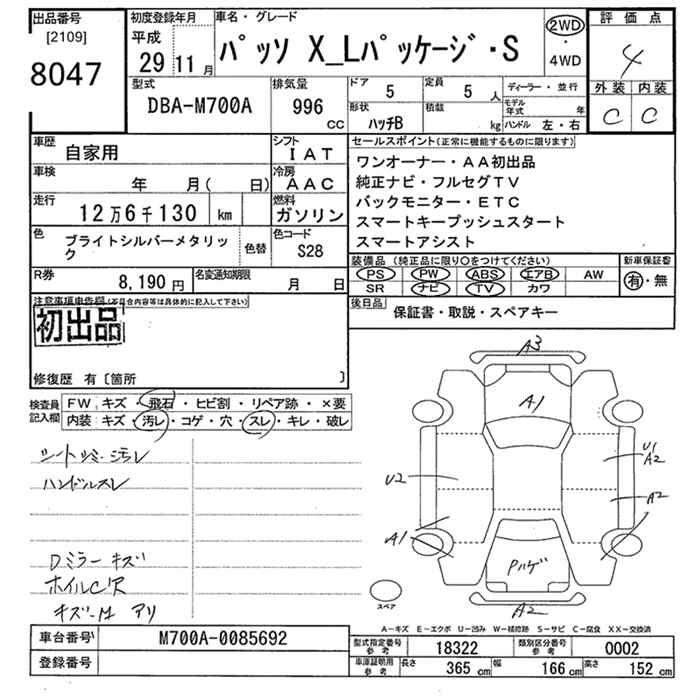 出品番号
[2109]
8047
初度登録年月
平成
29 11月
車名・グレード
パッソ X_Lパッケージ・S
2WD
・
4WD
評価点
4
外装 内装
C C
型式
DBA-M700A
排気量
996
cc
ドア
5
定員
5 人
ディーラー・並行
形状
ハッチB
積載
kg
モデル年式 年
ハンドル 左・右
車歴
自家用
シフト
IAT
車検
年 月( 日)
冷房
AAC
走行
12万6千130 km
燃料
ガソリン
色
ブライトシルバーメタリック
色替
色コード
S28
R券
8,190円
名変通知期限
月 日
セールスポイント(正常に機能するものに限ります)
ワンオーナー・AA初出品
純正ナビ・フルセグTV
バックモニター・ETC
スマートキープッシュスタート
スマートアシスト
装備品(純正品に限り○をつけてください)
PS PW ABS エアB AW
SR ナビ TV カワ
新車保証書
有・無
後日品
保証書・取説・スペアキー
注意事項申告欄(不具合内容等は具体的に記入して下さい)
初出品
修復歴 有〔箇所 〕
検査員記入欄
FW キズ・飛石・ヒビ割・リペア跡・×要
内装 キズ・汚レ・コゲ・穴・スレ・キレ・破レ
シートシミ・汚レ
ハンドルスレ
Dミラーキズ
ホイルC尺
アリ
A3
A1
U1
A2
U2
A2
A1
Pハゲ
A2
スペア
A-キズ E-エクボ U-凹み W-補修跡 S-サビ C-腐食 XX-交換済
車台番号
M700A-0085692
登録番号
型式指定番号
参考
18322
類別区分番号
参考
0002
車庫証明用
参考
長さ 365 cm
幅 166 cm
高さ 152 cm